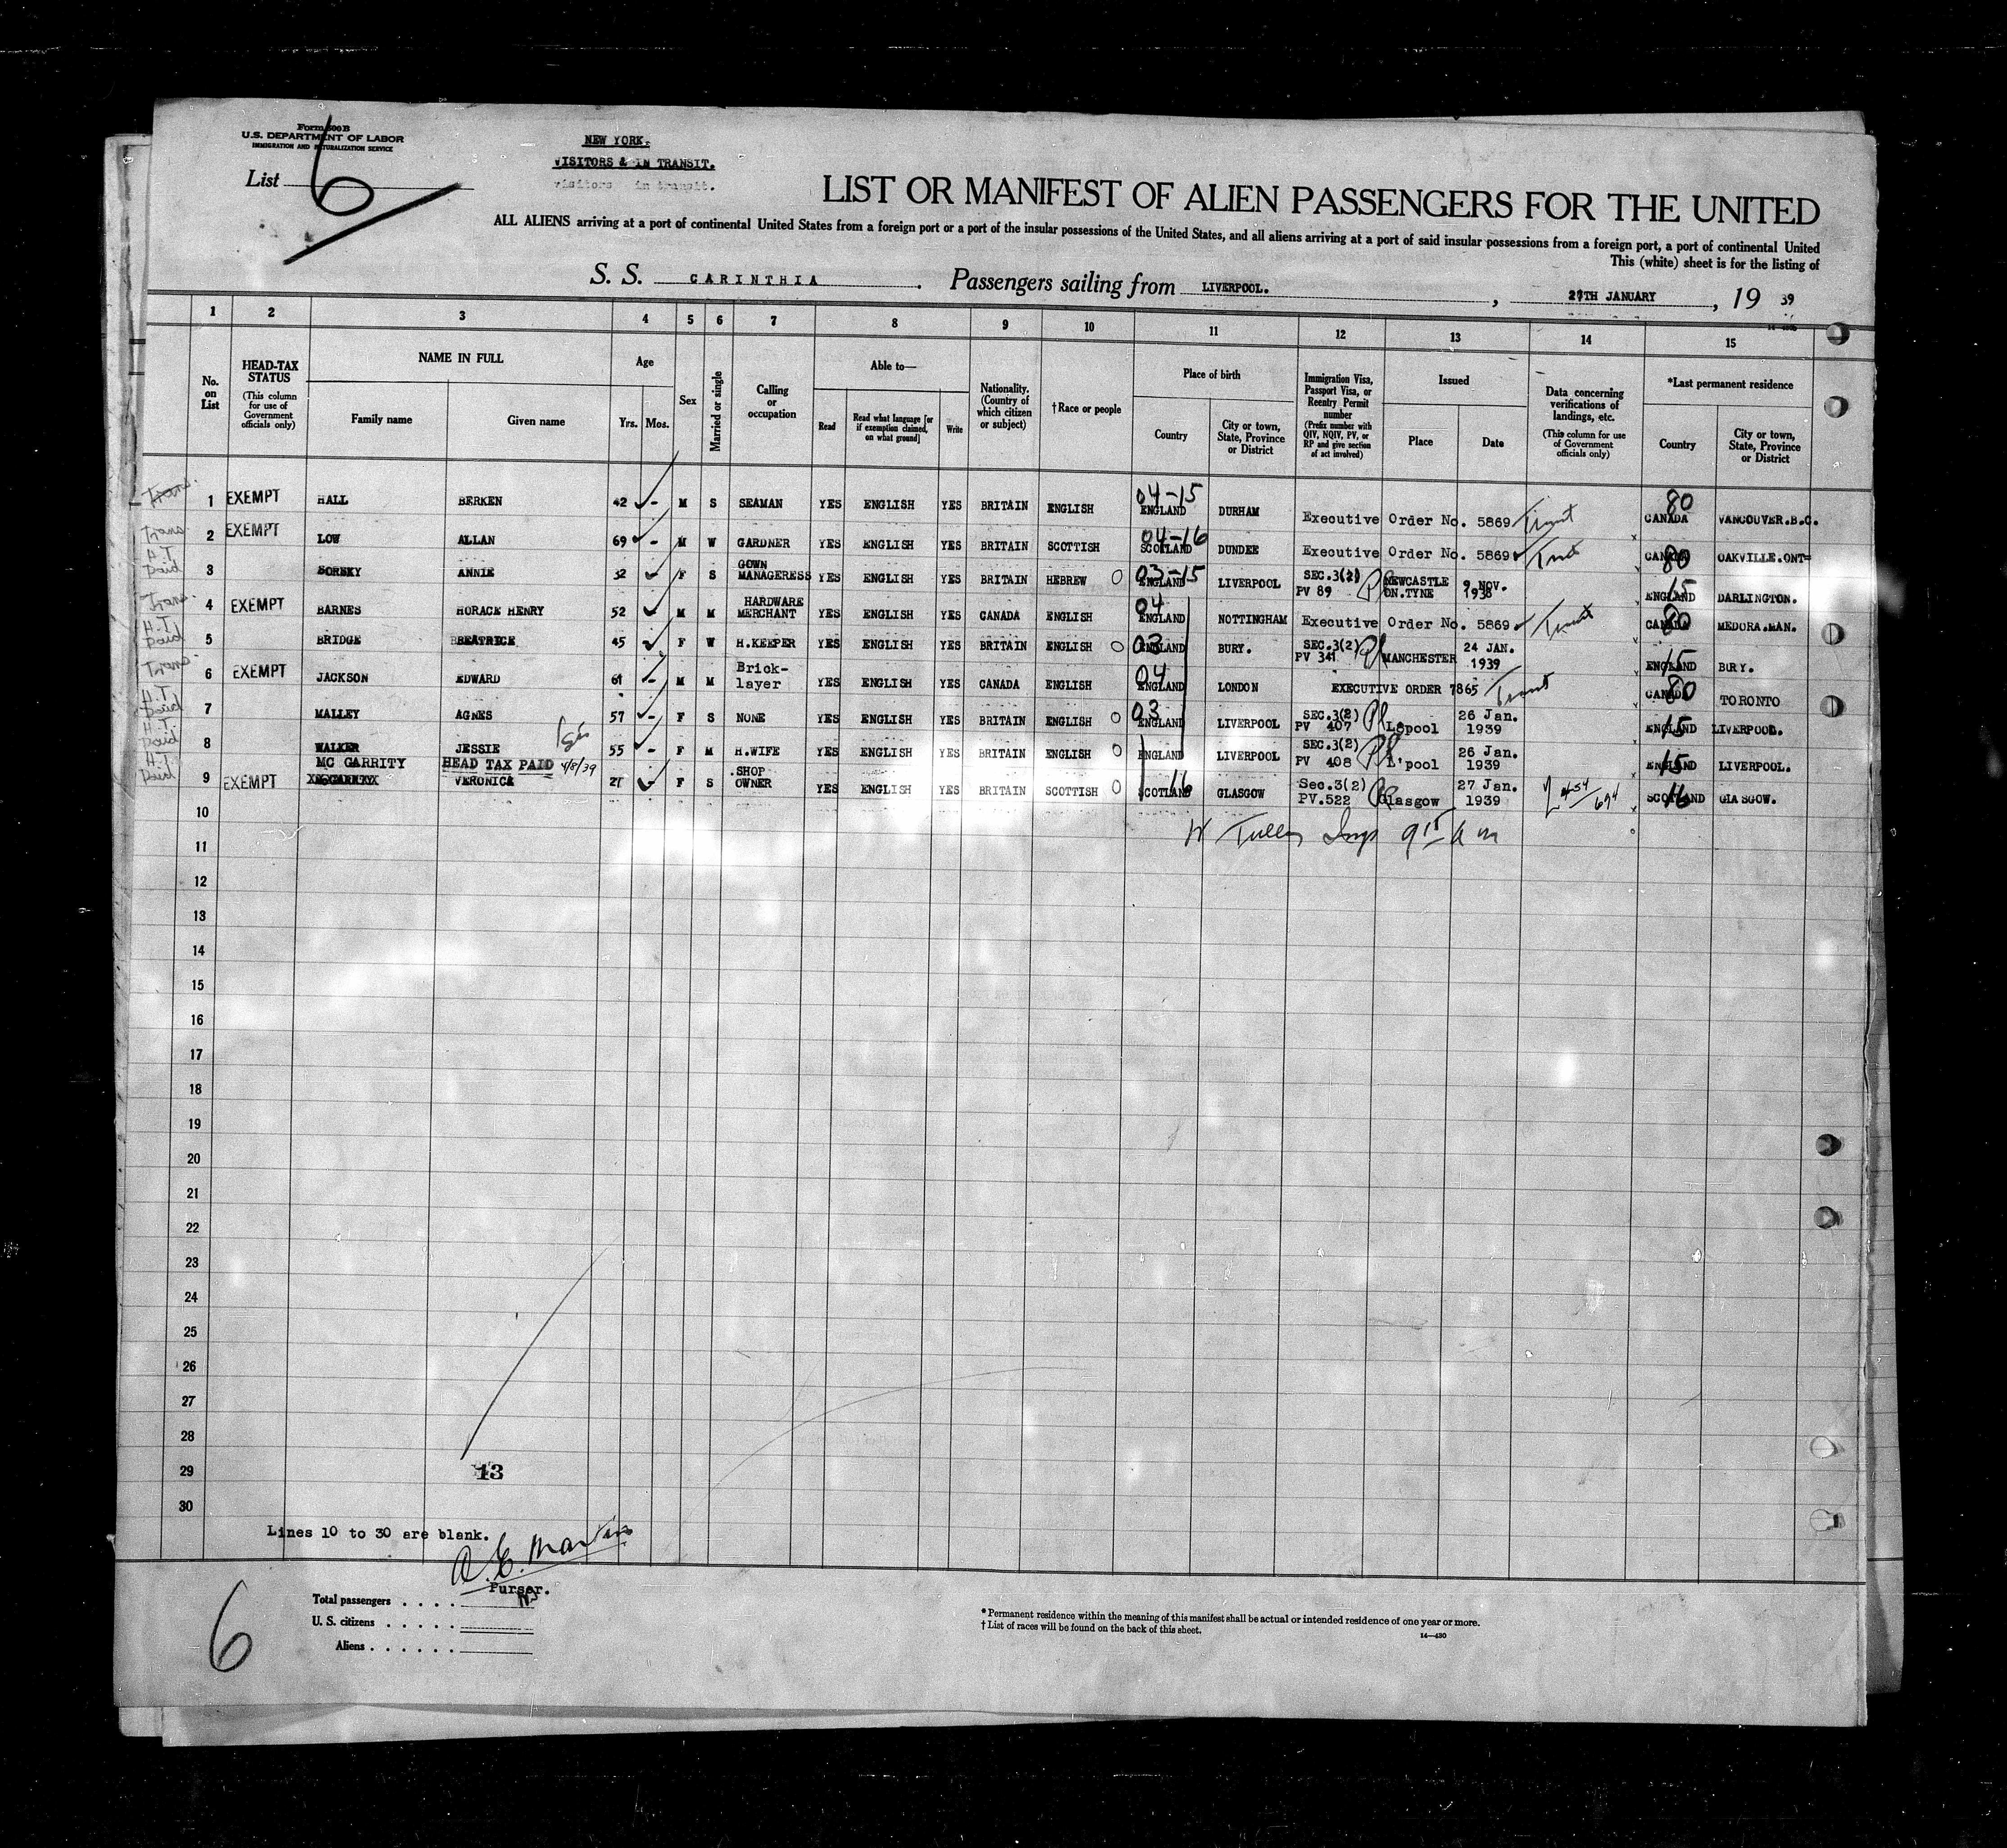 Form 500B
U.S. DEPARTMENT OF LABOR
IMMIGRATION AND NATURALIZATION SERVICE
List 6
NEW YORK.
VISITORS & IN TRANSIT.
visitors in transit.
LIST OR MANIFEST OF ALIEN PASSENGERS FOR THE UNITED
ALL ALIENS arriving at a port of continental United States from a foreign port or a port of the insular possessions of the United States, and all aliens arriving at a port of said insular possessions from a foreign port, a port of continental United
This (white) sheet is for the listing of
S. S. CARINTHIA. Passengers sailing from LIVERPOOL. , 27TH JANUARY , 19 39
1 2 3 4 5 6 7 8 9 10 11 12 13 14 15
No. on List
HEAD-TAX STATUS (This column for use of Government officials only)
NAME IN FULL
Family name Given name
Age
Yrs. Mos.
Sex
Married or single
Calling or occupation
Able to—
Read Read what language [or if exemption claimed, on what ground] Write
Nationality. (Country of which citizen or subject)
†Race or people
Place of birth
Country City or town, State, Province or District
Immigration Visa, Passport Visa, or Reentry Permit number (Prefix number with QIV, NQIV, PV, or RP and give section of act involved)
Issued
Place Date
Data concerning verifications of landings, etc. (This column for use of Government officials only)
*Last permanent residence
Country City or town, State, Province or District
Trans. 1 EXEMPT HALL BERKEN 42 - M S SEAMAN YES ENGLISH YES BRITAIN ENGLISH 04-15 ENGLAND DURHAM Executive Order No. 5869 80 CANADA VANCOUVER.B.C.
Trans. 2 EXEMPT LOW ALLAN 69 - M W GARDNER YES ENGLISH YES BRITAIN SCOTTISH 04-16 SCOTLAND DUNDEE Executive Order No. 5869 80 CANADA OAKVILLE.ONT=
H.T. paid 3 SORSKY ANNIE 32 F S GOWN MANAGERESS YES ENGLISH YES BRITAIN HEBREW 03-15 ENGLAND LIVERPOOL SEC.3(2) PV 89 NEWCASTLE ON.TYNE 9 NOV. 1938 15 ENGLAND DARLINGTON.
Trans. 4 EXEMPT BARNES HORACE HENRY 52 M M HARDWARE MERCHANT YES ENGLISH YES CANADA ENGLISH 04 ENGLAND NOTTINGHAM Executive Order No. 5869 80 CANADA MEDORA.MAN.
H.T. paid 5 BRIDGE BEATRICE 45 F W H.KEEPER YES ENGLISH YES BRITAIN ENGLISH 03 ENGLAND BURY. SEC.3(2) PV 341 MANCHESTER 24 JAN. 1939 15 ENGLAND BURY.
Trans. 6 EXEMPT JACKSON EDWARD 61 - M M Brick-layer YES ENGLISH YES CANADA ENGLISH 04 ENGLAND LONDON EXECUTIVE ORDER 7865 80 CANADA TORONTO
H.T. paid 7 MALLEY AGNES 57 - F S NONE YES ENGLISH YES BRITAIN ENGLISH 03 ENGLAND LIVERPOOL SEC.3(2) PV 407 L'pool 26 Jan. 1939 15 ENGLAND LIVERPOOL.
H.T. paid 8 WALKER JESSIE 55 - F M H.WIFE YES ENGLISH YES BRITAIN ENGLISH ENGLAND LIVERPOOL SEC.3(2) PV 408 L'pool 26 Jan. 1939 15 ENGLAND LIVERPOOL.
MC GARRITY HEAD TAX PAID 4/8/39
H.T. paid 9 EXEMPT VERONICA 27 F S SHOP OWNER YES ENGLISH YES BRITAIN SCOTTISH 16 SCOTLAND GLASGOW Sec.3(2) PV.522 Glasgow 27 Jan. 1939 16 SCOTLAND GLASGOW.
10
11
12
13
14
15
16
17
18
19
20
21
22
23
24
25
26
27
28
29
30
13
Lines 10 to 30 are blank.
Purser.
6
Total passengers . . . .
U. S. citizens . . . . .
Aliens . . . . . .
* Permanent residence within the meaning of this manifest shall be actual or intended residence of one year or more.
† List of races will be found on the back of this sheet.
14—430